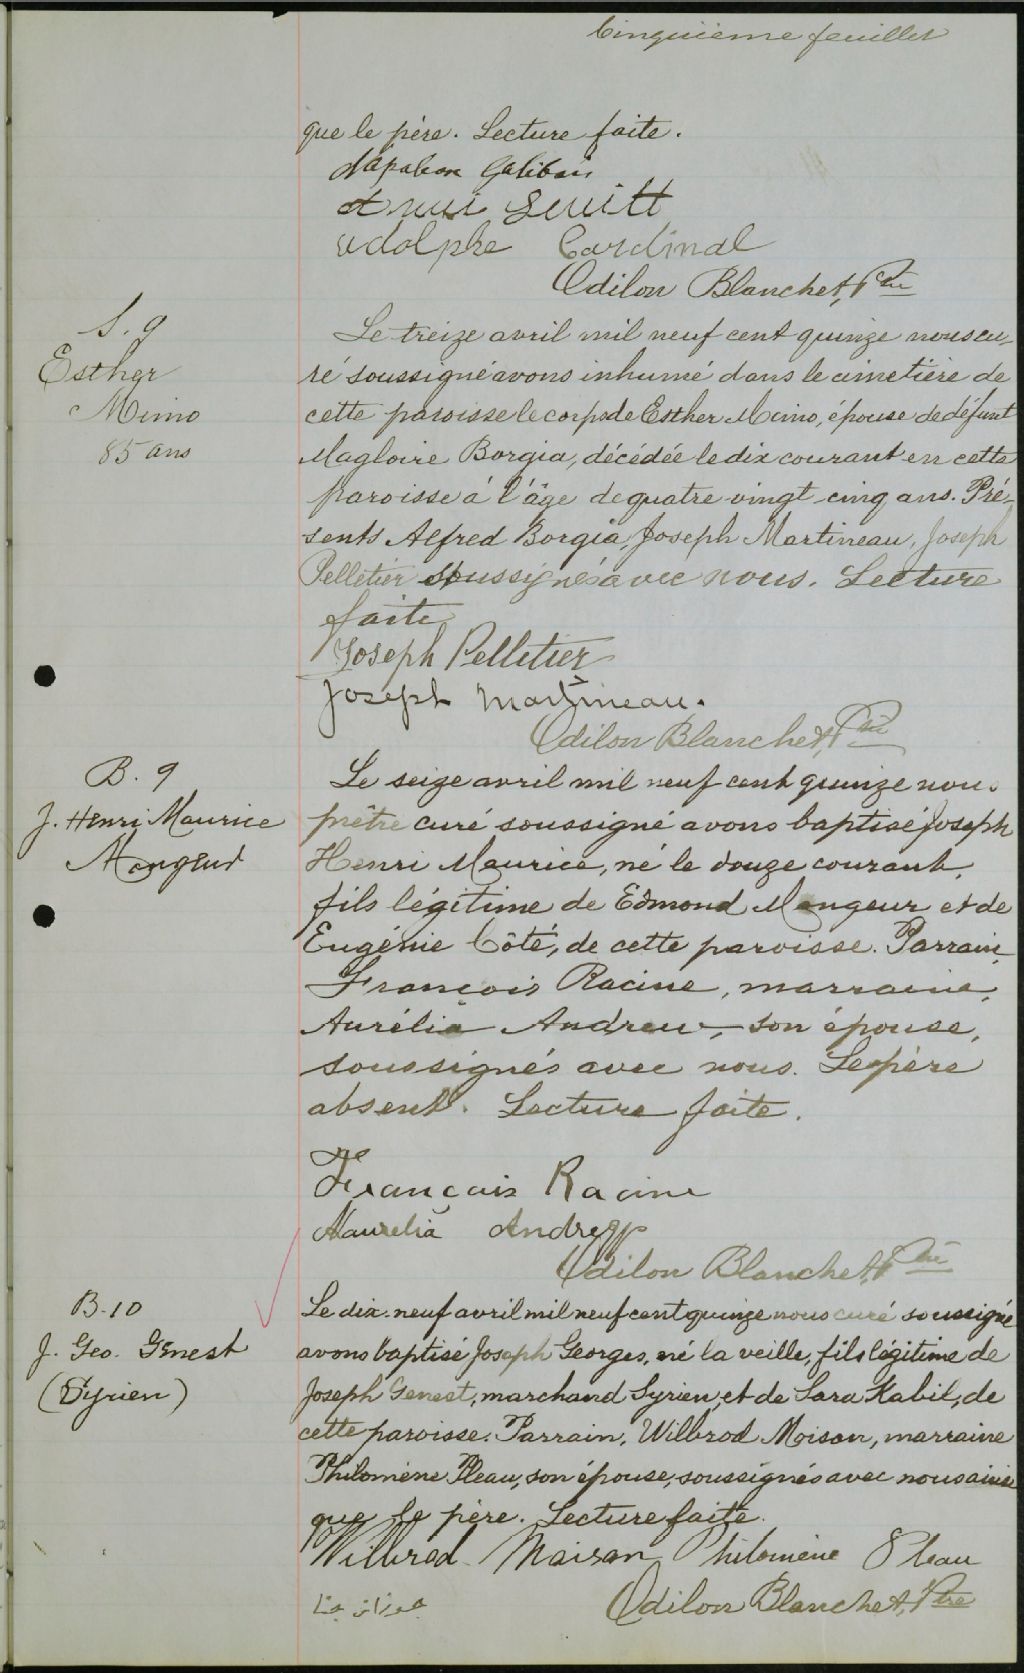 Cinquième feuillet
que le père. Lecture faite.
Napoleon Galibois
Adolphe Cardinal
Odilon Blanchet, Ptre
S. 9
Esther
Mimo
85 ans
Le treize avril mil neuf cent quinze nous cu-
ré soussigné avons inhumé dans le cimetière de
cette paroisse le corps de Esther Mimo, épouse de défunt
Magloire Borgia, décédée le dix courant en cette
paroisse à l'âge de quatre vingt cinq ans. Pré-
sents Alfred Borgia, Joseph Martineau, Joseph
Pelletier soussignés avec nous. Lecture
faite
Joseph Pelletier
Joseph Martineau.
Odilon Blanchet, Ptre
B. 9
J. Henri Maurice
Mengeur
Le seize avril mil neuf cent quinze nous
prêtre curé soussigné avons baptisé Joseph
Henri Maurice, né le douze courant,
fils légitime de Edmond Mengeur et de
Eugénie Côté, de cette paroisse. Parrain,
François Racine, marraine,
Aurélia Andrew, son épouse,
soussignés avec nous. Le père
absent. Lecture faite.
François Racine
Aurelia
Odilon Blanchet, Ptre
B. 10
J. Geo. Genest
(Syrien)
Le dix-neuf avril mil neuf cent quinze nous curé soussigné
avons baptisé Joseph Georges, né la veille, fils légitime de
Joseph Genest, marchand Syrien, et de Sara Kabil, de
cette paroisse. Parrain, Wilbrod Moison, marraine
Philomène Pleau, son épouse, soussignés avec nous ainsi
que le père. Lecture faite.
Wilbrod Maison Philomène Pleau
Odilon Blanchet, Ptre